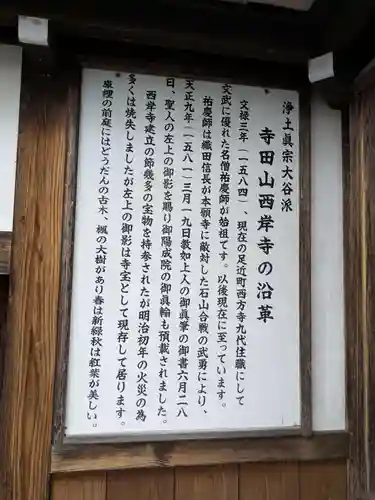 浄土眞宗大谷派
寺田山西岸寺の沿革
文禄三年(一五八四)、現在の足近町西方寺九代住職にして
文武に優れた名僧祐慶師が始祖です。以後現在に至っています。
祐慶師は織田信長が本願寺に敵対した石山合戦の武勇により、
天正九年(一五八一)三月一九日教如上人の御眞筆の御書六月二八
日、聖人の左上の御影を賜り御陽成院の御眞輪も預載されました。
西岸寺建立の節幾多の宝物を持参されたが明治初年の火災の為
多くは焼失しましたが左上の御影は寺宝として現存して居ります。
庫裡の前庭にはどうだんの古木、楓の大樹があり春は新緑秋は紅葉が美しい。